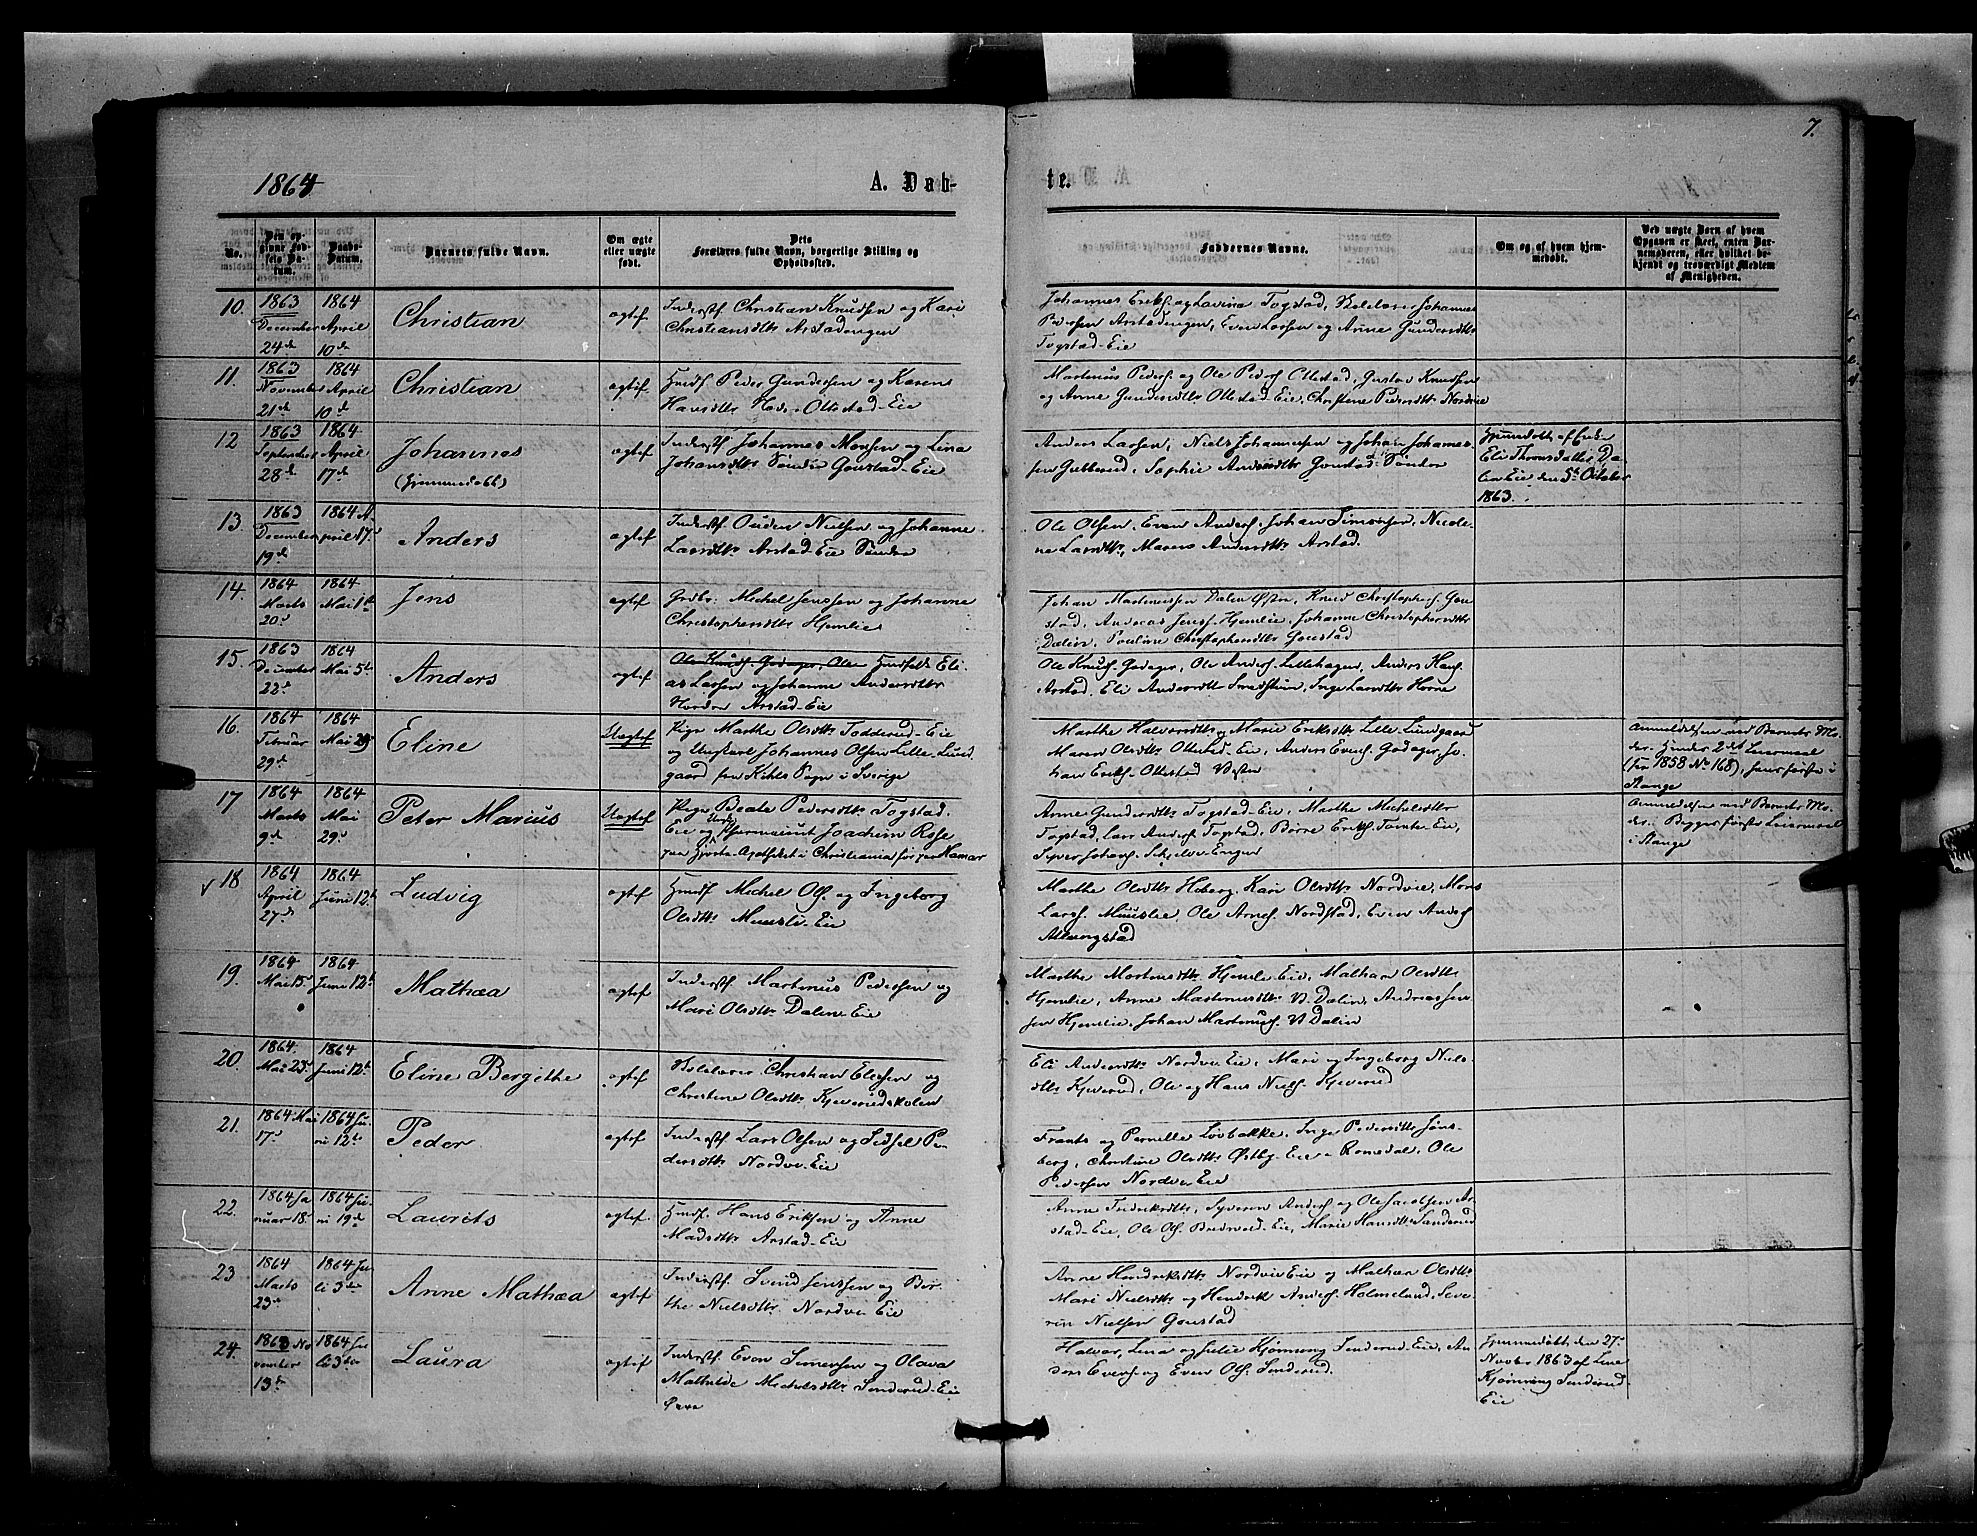 7.
1864
A. Døb-
te.
No.
Den opgivne Fødsels Datum.
Daabs-Datum.
Barnets fulde Navn.
Om ægte eller uægte født.
Dets Forældres fulde Navn, borgerlige Stilling og Opholdssted.
Faddernes Navne.
Om og af hvem hjemmedøbt.
Ved uægte Børn af hvem Opgaven er skeet, enten Barnemoderen, eller hvilket bekjendt og troværdigt Medlem af Menigheden.
10. 1863 December 24de
1864 April 10de
Christian
ægtef
Inderstf Christian Knudsen og Kari
Christiansdtr Arstadengen
Johannes Eriks. og Lavine Togstad, Johannes
Pedersen Arstadengen, Even Larsen og Anne Gundersdtr
Togstad-Eie
11. 1863 November 21de
1864 April 10de
Christian
ægtef.
Husmf. Peder Gundersen og Karen
Hansdtr Ottestad-Eie
Martinus Peders. og Ole Peders. Ottestad, Gustav Knudsen
og Anne Gundersdtr Ottestad-Eie, Christine Pedersdtr Nordvie
12 1863 September 28de
1864 April 17de
Johannes
(hjemmedøbt)
ægtef
Inderstf Johannes Monsen og Lina
Johansdtr Søndre Gonstad-Eie
Anders Larsen, Niels Johannessen og Johan Johannes-
sen Gubberud, Sophie Andersdtr Gonstad Søndre
Hjemmedøbt af Enke
Eli Thronsdatter Da-
len Eie den 5te October
1863.
13. 1863 December 19de
1864 April 17de
Anders
ægtef
Inderstf Ouden Nielsen og Johanne
Larsdtr Arstad-Eie Søndre
Ole Olsen, Even Anders. Johan Simensen, Nicoli-
ne Larsdtr, Maren Andersdtr Arstad.
14. 1864 Marts 20de
1864 Mai 1ste
Jens
ægtef
Grdbr. Michel Jenssen og Johanne
Christophersdtr Hjemlie
Johan Martinussen Dalen Østre, Knud Christophers. Gon-
stad, Andreas Jens. Hjemlie, Johanne Christophersdtr
Dalen, Pauline Christophersdtr Gonstad
15. 1863 December 22de
1864 Mai 5te
Anders
ægtef
Ole Knuds. Godager, Ole Husmfolk Eli-
as Larsen og Johanne Andersdtr
Nordre Arstad-Eie
Ole Knuds. Godager, Ole Anders. Lillehagen, Anders Hans.
Arstad, Eli Andersdtr Smedstuen, Inge Larsdtr Horne
16. 1864 Februar 29de
1864 Mai 29de
Eline
Uægtef
Pige Marthe Olsdtr Todderud-Eie
og Ungkarl Johannes Olsen Lille-Lund-
gaard fra Kihls Sogn i Sverige
Marthe Halvorsdtr og Marie Eriksdtr Lille-Lundgaard
Maren Olsdtr Ottestad-Eie, Anders Evens. Godager, Jo-
han Eriks. Ottestad Vestre
Anmeldelsen ved Barnets Mo-
der. Hendes 2det Leiermaal
(for 1858 No 168), hans første i
Stange
17 1864 Marts 9de
1864 Mai 29de
Peter Marius
Uægtef
Pige Beate Pedersdtr Togstad-
Eie og Pharmaceut Joachim Rose
paa Hjorte-Apotheket i Christiania før paa Hamar
Anne Gundersdtr Togstad-Eie, Marthe Michelsdtr
Togstad, Lars Anders. Togstad, Børre Eriks. Tomte-Eie,
Syver Johans. Skjelve-Engen
Anmeldelsen ved Barnets Mo-
der. Begges første Leiermaal
i Stange
v 18 1864 April 27de
1864 Juni 12te
Ludvig
ægtef
Husmf. Michel Ols. og Ingeborg
Olsdtr Muuslie-Eie
Marthe Olsdtr Hoberg, Kari Olsdtr Nordvie, Mons
Lars. Muuslie, Ole Arnes. Nordstad, Even Anders.
Alvengstad
19. 1864 Mai 15de
1864 Juni 12te
Mathæa
ægtef
Inderstf Martinus Pedersen og
Mari Olsdtr Dalen-Eie
Marthe Mortensdtr Hjemlie-Eie, Mathæa Olsdtr
Hjemlie, Anne Martinusdtr V. Dalen, Andreas Jen-
sen Hjemlie, Johan Martinus. V. Dalen
20. 1864. Mai 23de
1864 Juni 12te
Eline Bergithe
ægtef
Skolelærer Christian Eliesen og
Christine Olsdtr Kjeverudskolen
Eli Andersdtr Nordvie Eie, Mari og Ingeborg Niels-
dtr Kjeverud, Ole og Hans Niels. Kjeverud
21. 1864 Mai 17de
1864 Juni 12te
Peder
ægtef
Inderstf Lars Olsen og Sidsel Pe-
dersdtr Nordvie Eie
Frants og Pernille Løvbakke, Inge Pedersdtr Jøns-
berg, Christine Olsdtr Østby-Eie i Romedal, Ole
Pedersen Nordvie Eie
22. 1864 Januar 18de
1864 Juni 19de
Laurits
ægtef.
Husmf. Hans Eriksen og Anne
Madsdtr Arstad-Eie
Anne Fredriksdtr, Syveren Anders. og Ole Jacobsen Ar-
stad-Eie, Ole Ols. Bredvold-Eie, Marie Hansdtr Sanderud
23 1864 Marts 23de
1864 Juli 3die
Anne Mathæa
ægtef
Inderstf Svend Jenssen og Ber-
the Nielsdtr Nordvie Eie
Anne Hendriksdtr Nordvie Eie og Mathæa Olsdtr
Mari Nielsdtr og Hendrik Anders. Holmelund, Seve-
rin Nielsen Gonstad
24. 1863 November 13de
1864 Juli 3die
Laura
ægtef
Inderstf Even Simensen og Olava
Mathilde Michelsdtr Sanderud-Eie
Øvre
Halvor, Lina og Julie Kjønning Sanderud-Eie, An-
ders Evens. og Even Ols. Sanderud.
Hjemmedøbt den 27de
Novbr 1863 af Line
Kjønning Sanderud-
Eie